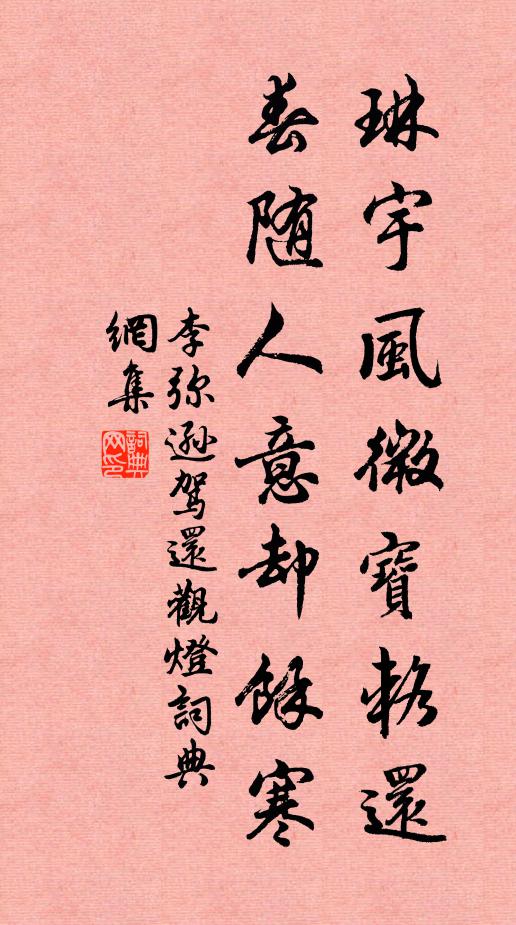 琳宇風微寶輅還
春随人意却餘寒
李弥遜駕還觀燈詞典
網集
詞典網印